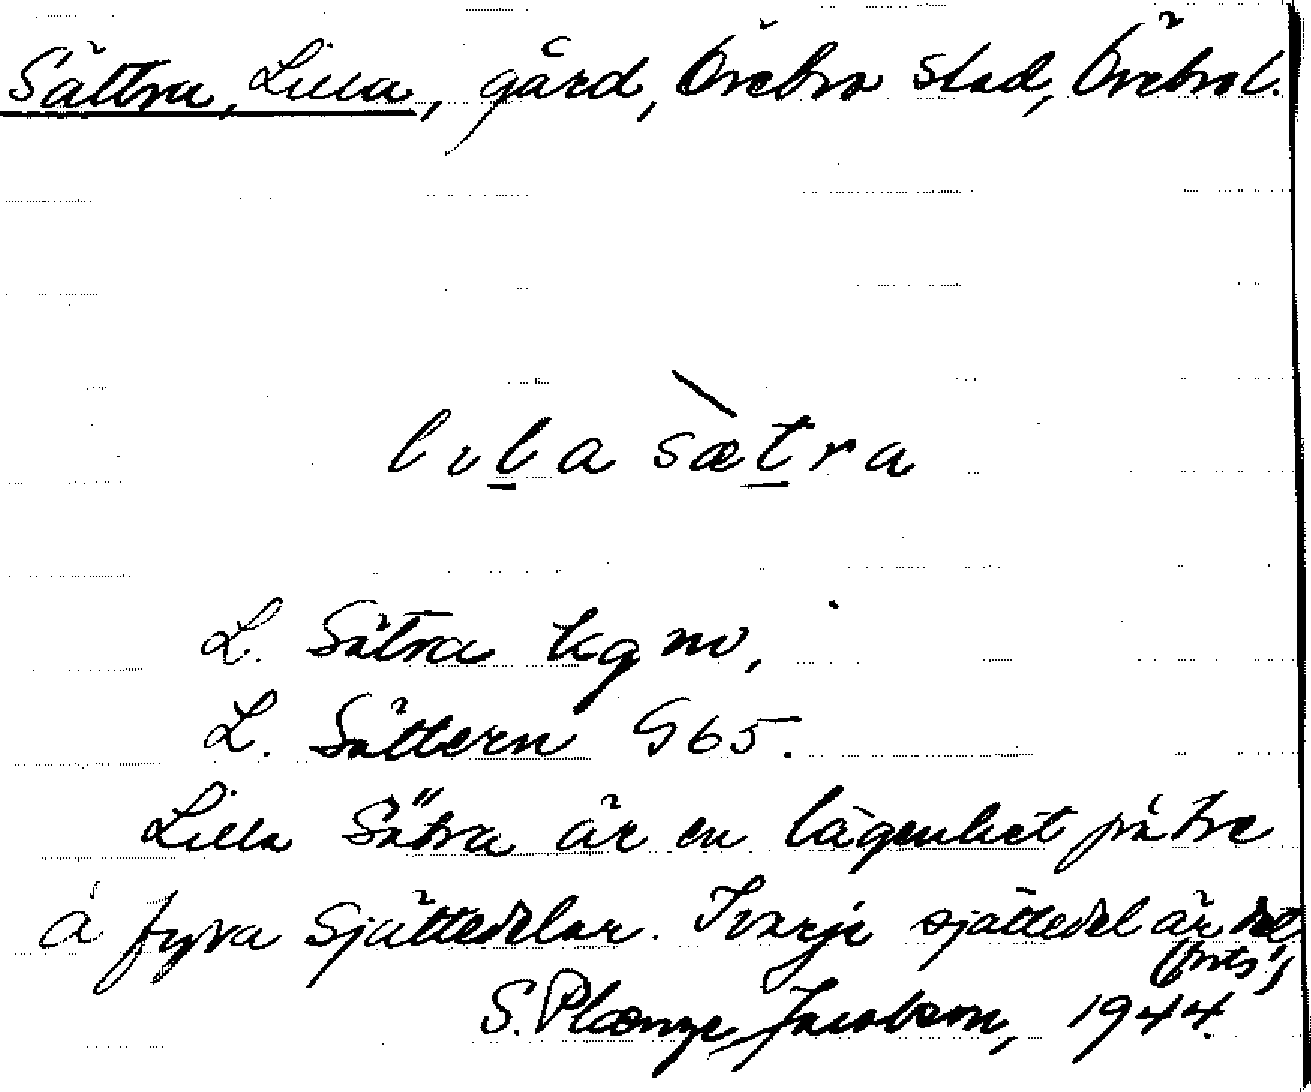 Sättra, Lilla, gård, Örebro stad, Örebro l.
lɩla sætra
L. Sätra kg nv,
L. Sättern G65.
Lilla Sätra är en lägenhet på tre
à fyra sjättedelar. I varje sjättedel är det
(forts.)
S. Plænge Jacobson, 1944.